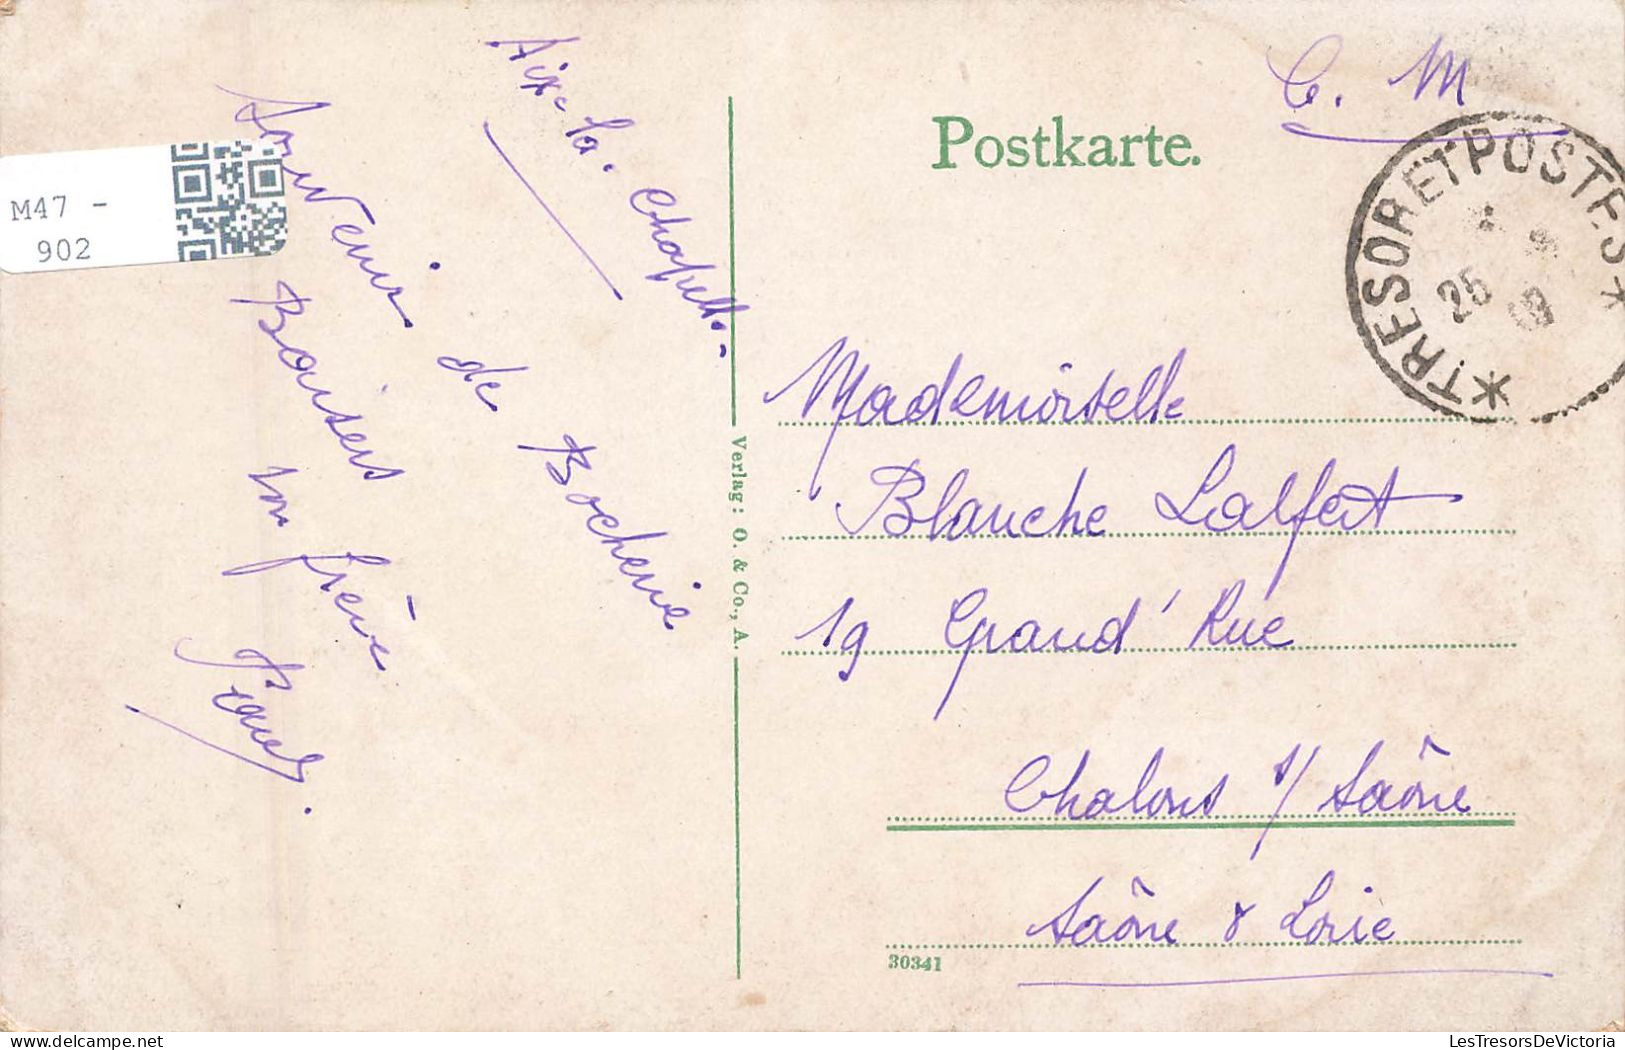 C. M
Postkarte.
TRESOR ET POSTES
25
M47 -
902
Aix-la-Chapelle
Souvenir de Bochenie
Baisers
ton frère
Verlag: O. & Co., A.
Mademoiselle
Blanche Lalfert
19 Grand' Rue
Chalons s/ Saône
Saône & Loire
30341
LesTresorsDeVictoria